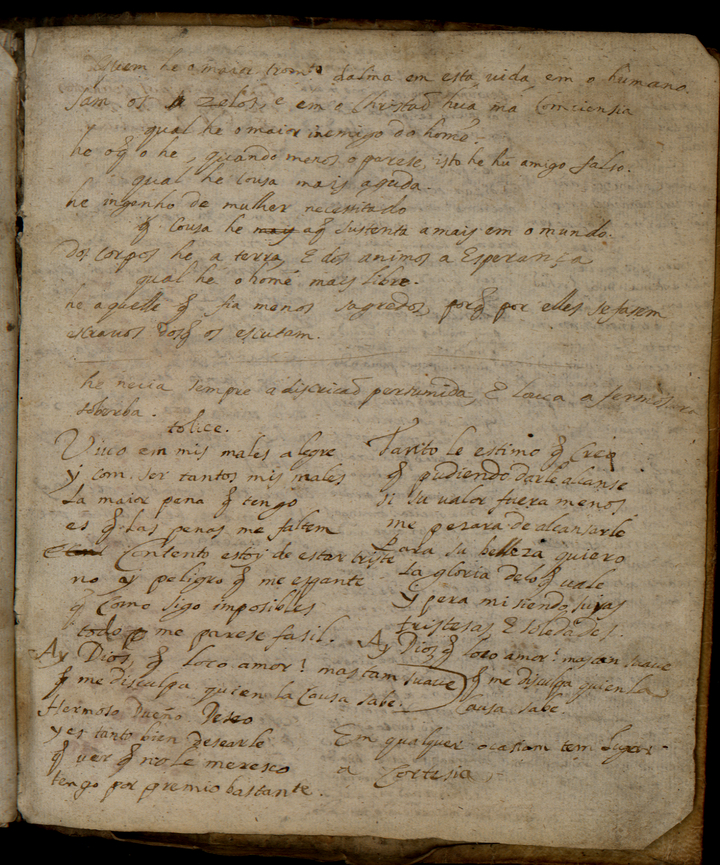 quem he o maior tromto dalma em esta vida em o humano.
sam os zelos, e em o Christaõ hũa má Comciensia
qual he o maior inemigo do home.
he o q̃ o he, quando menos o parese, isto he hũ amigo falso.
qual he Cousa mais aguda.
he ingenho de mulher necessitado
q̃ Cousa he may a q̃ sustenta a mais em o mundo.
dos Corpos he a terra, E dos animos a Esperança
qual he o home mais libre.
he aquelle q̃ fia menos segredos, porq̃ por elles se fasem
escravos dos q̃ os escutam.
he necia sempre a discricaõ persumida, E Louca a fermosura
soberba.
tolice.
Vivo em mis males alegre
y com ser tantos mis males
La maior pena q̃ tengo
es q̃ las penas me faltem
Contento estoy de estar triste
no ay peligro q̃ me espante
q̃ Como sigo imposibles
todo me parese fasil.
Ay Dios, q̃ loco amor! mas tam suave
q̃ me disculpa quien la Causa sabe.
Hermoso Dueño Deseo
y es tanto bien desearle
q̃ ver q̃ no le meresco
tengo por premio bastante.
Tanto le estimo q̃ Creo
q̃ pudiendo darle alcanse
si su valor fuera menos
me pesara de alcansarle
Para su belleza quiero
La gloria de lo q̃ vale
y pera mi siendo suyas
tristesas E soledades.
Ay Dios q̃ loco amor! mas tan suave
q̃ me disculpa quien la
Causa sabe.
Em qualquer ocasiam tem lugar
a Cortesia,